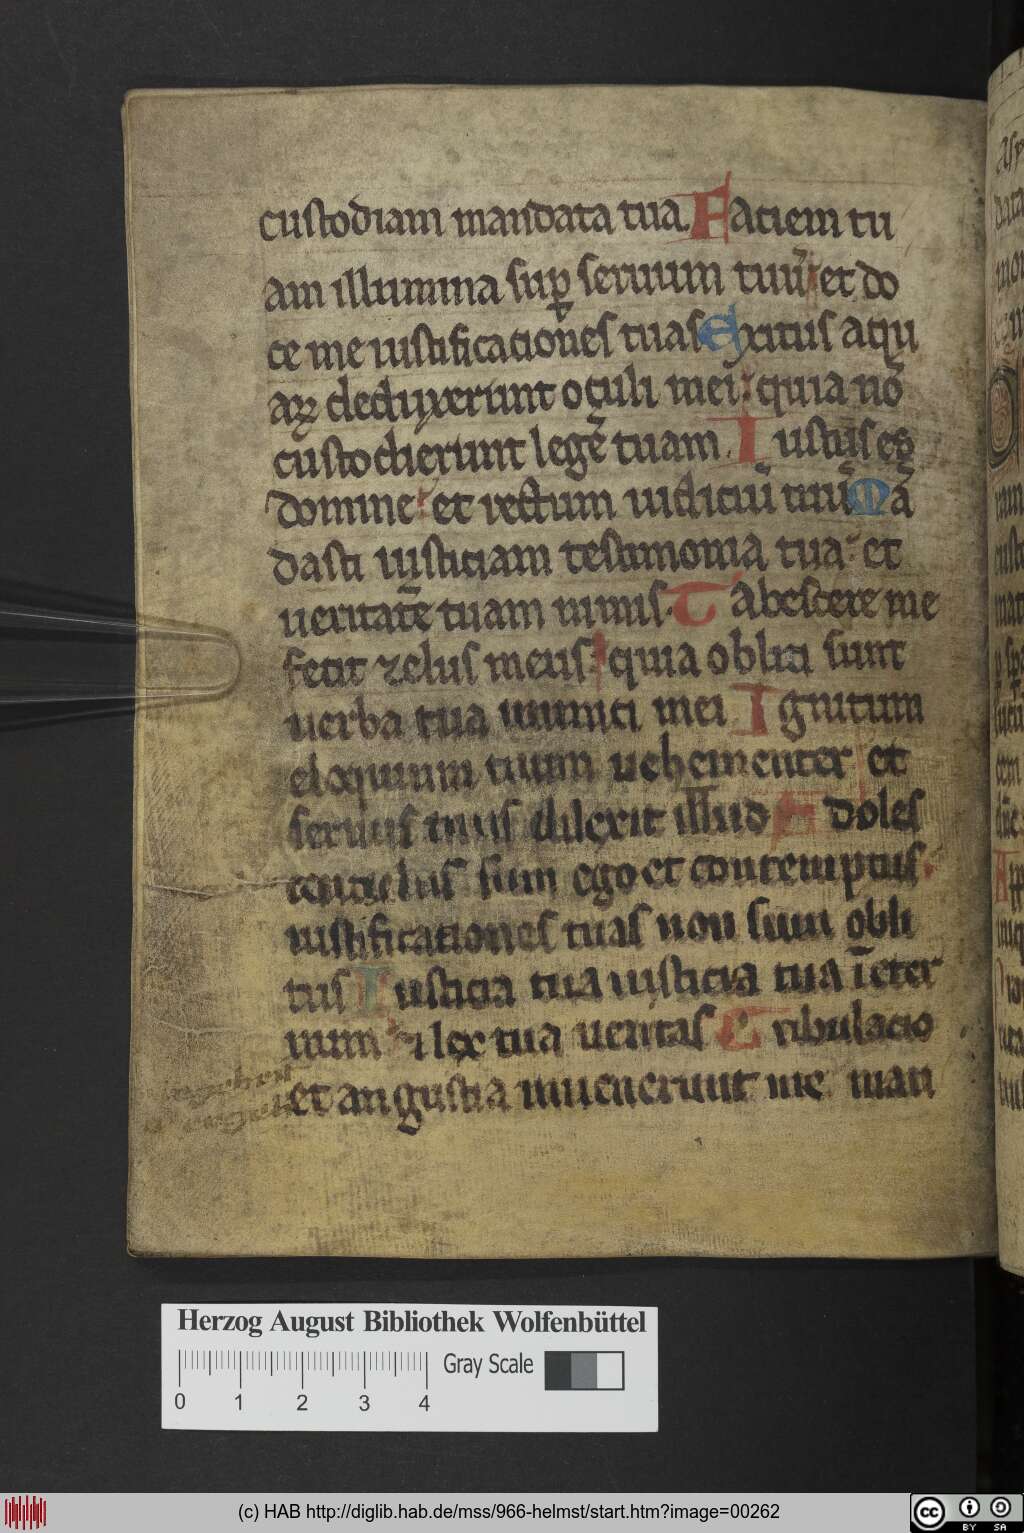 custodiam mandata tua. Faciem tu
am illumina sup̲ seruum tuū et do
ce me iustificationes tuas Exitus aqu
aꝝ deduxerunt oculi mei: quia nō
custodierunt legē tuam. Iustus es
domine: et rectum iudiciū tuū Mā
dasti iusticiam testimonia tua: et
ueritatē tuam nimis. Tabescere me
fecit zelus meus: quia obliti sunt
uerba tua inimici mei Ignitum
eloquium tuum uehementer et
seruus tuus dilexit illud Adoles
centulus sum ego et contemptus.
iustificationes tuas non sum obli
tus Iusticia tua iusticia tua ī eter
num: et lex tua ueritas Tribulacio
et angustia inuenerunt me man
Herzog August Bibliothek Wolfenbüttel
0 1 2 3 4 Gray Scale
(c) HAB http://diglib.hab.de/mss/966-helmst/start.htm?image=00262
cc BY SA